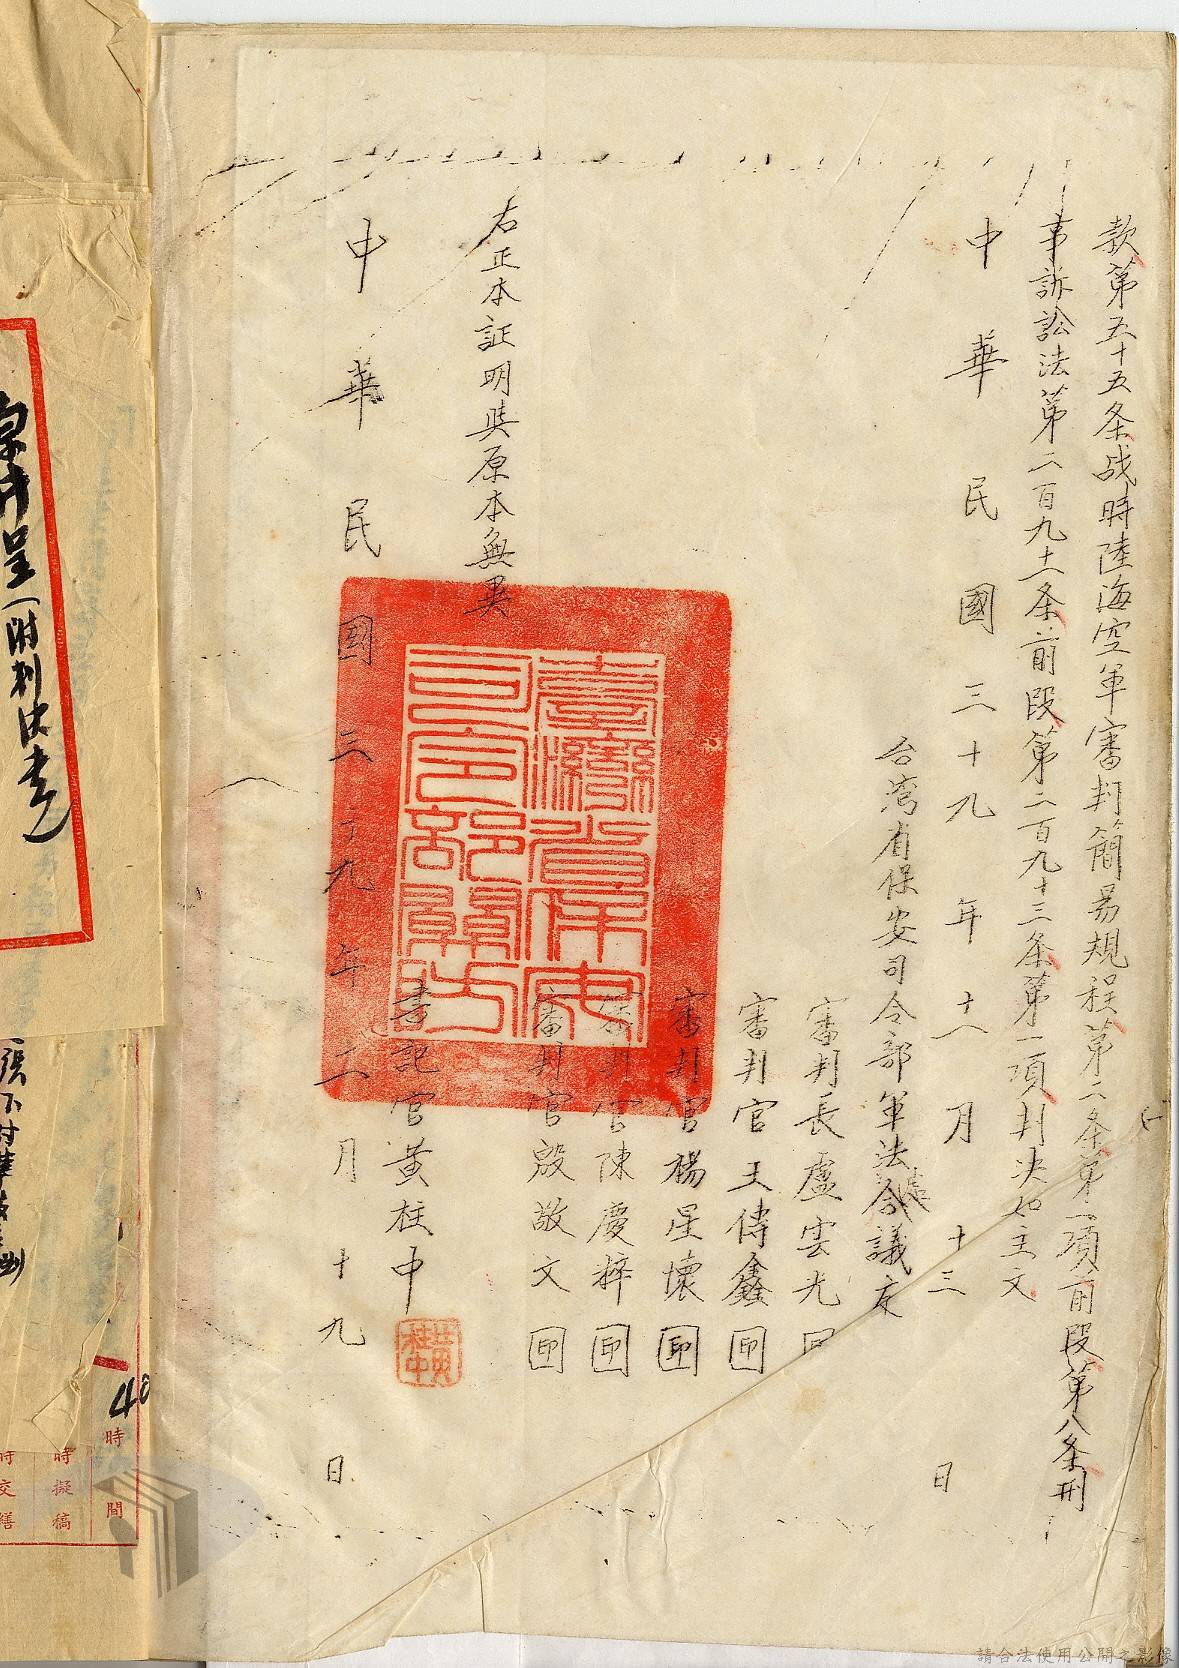 款第五十五条战時陸海空軍審判簡易規程第二条第一項前段第八条刑
事訴訟法第二百九十一条前段第二百九十三条第一項判决如主文
中華民國三十九年十一月十三日
台湾省保安司令部軍法處會議庭
審判長盧雲光印
審判官王傳鑫印
審判官楊星懷印
審判官陳慶粹印
審判官殷敬文印
右正本証明與原本無異
書記官黃柱中
黃柱中
中華民國三十九年十二月十九日
臺灣省保安
司令部關防
呈(附判决書)
40
時間
時擬稿
時交繕
請合法使用公開之影像